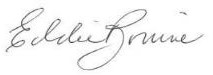 Eddie Bonine